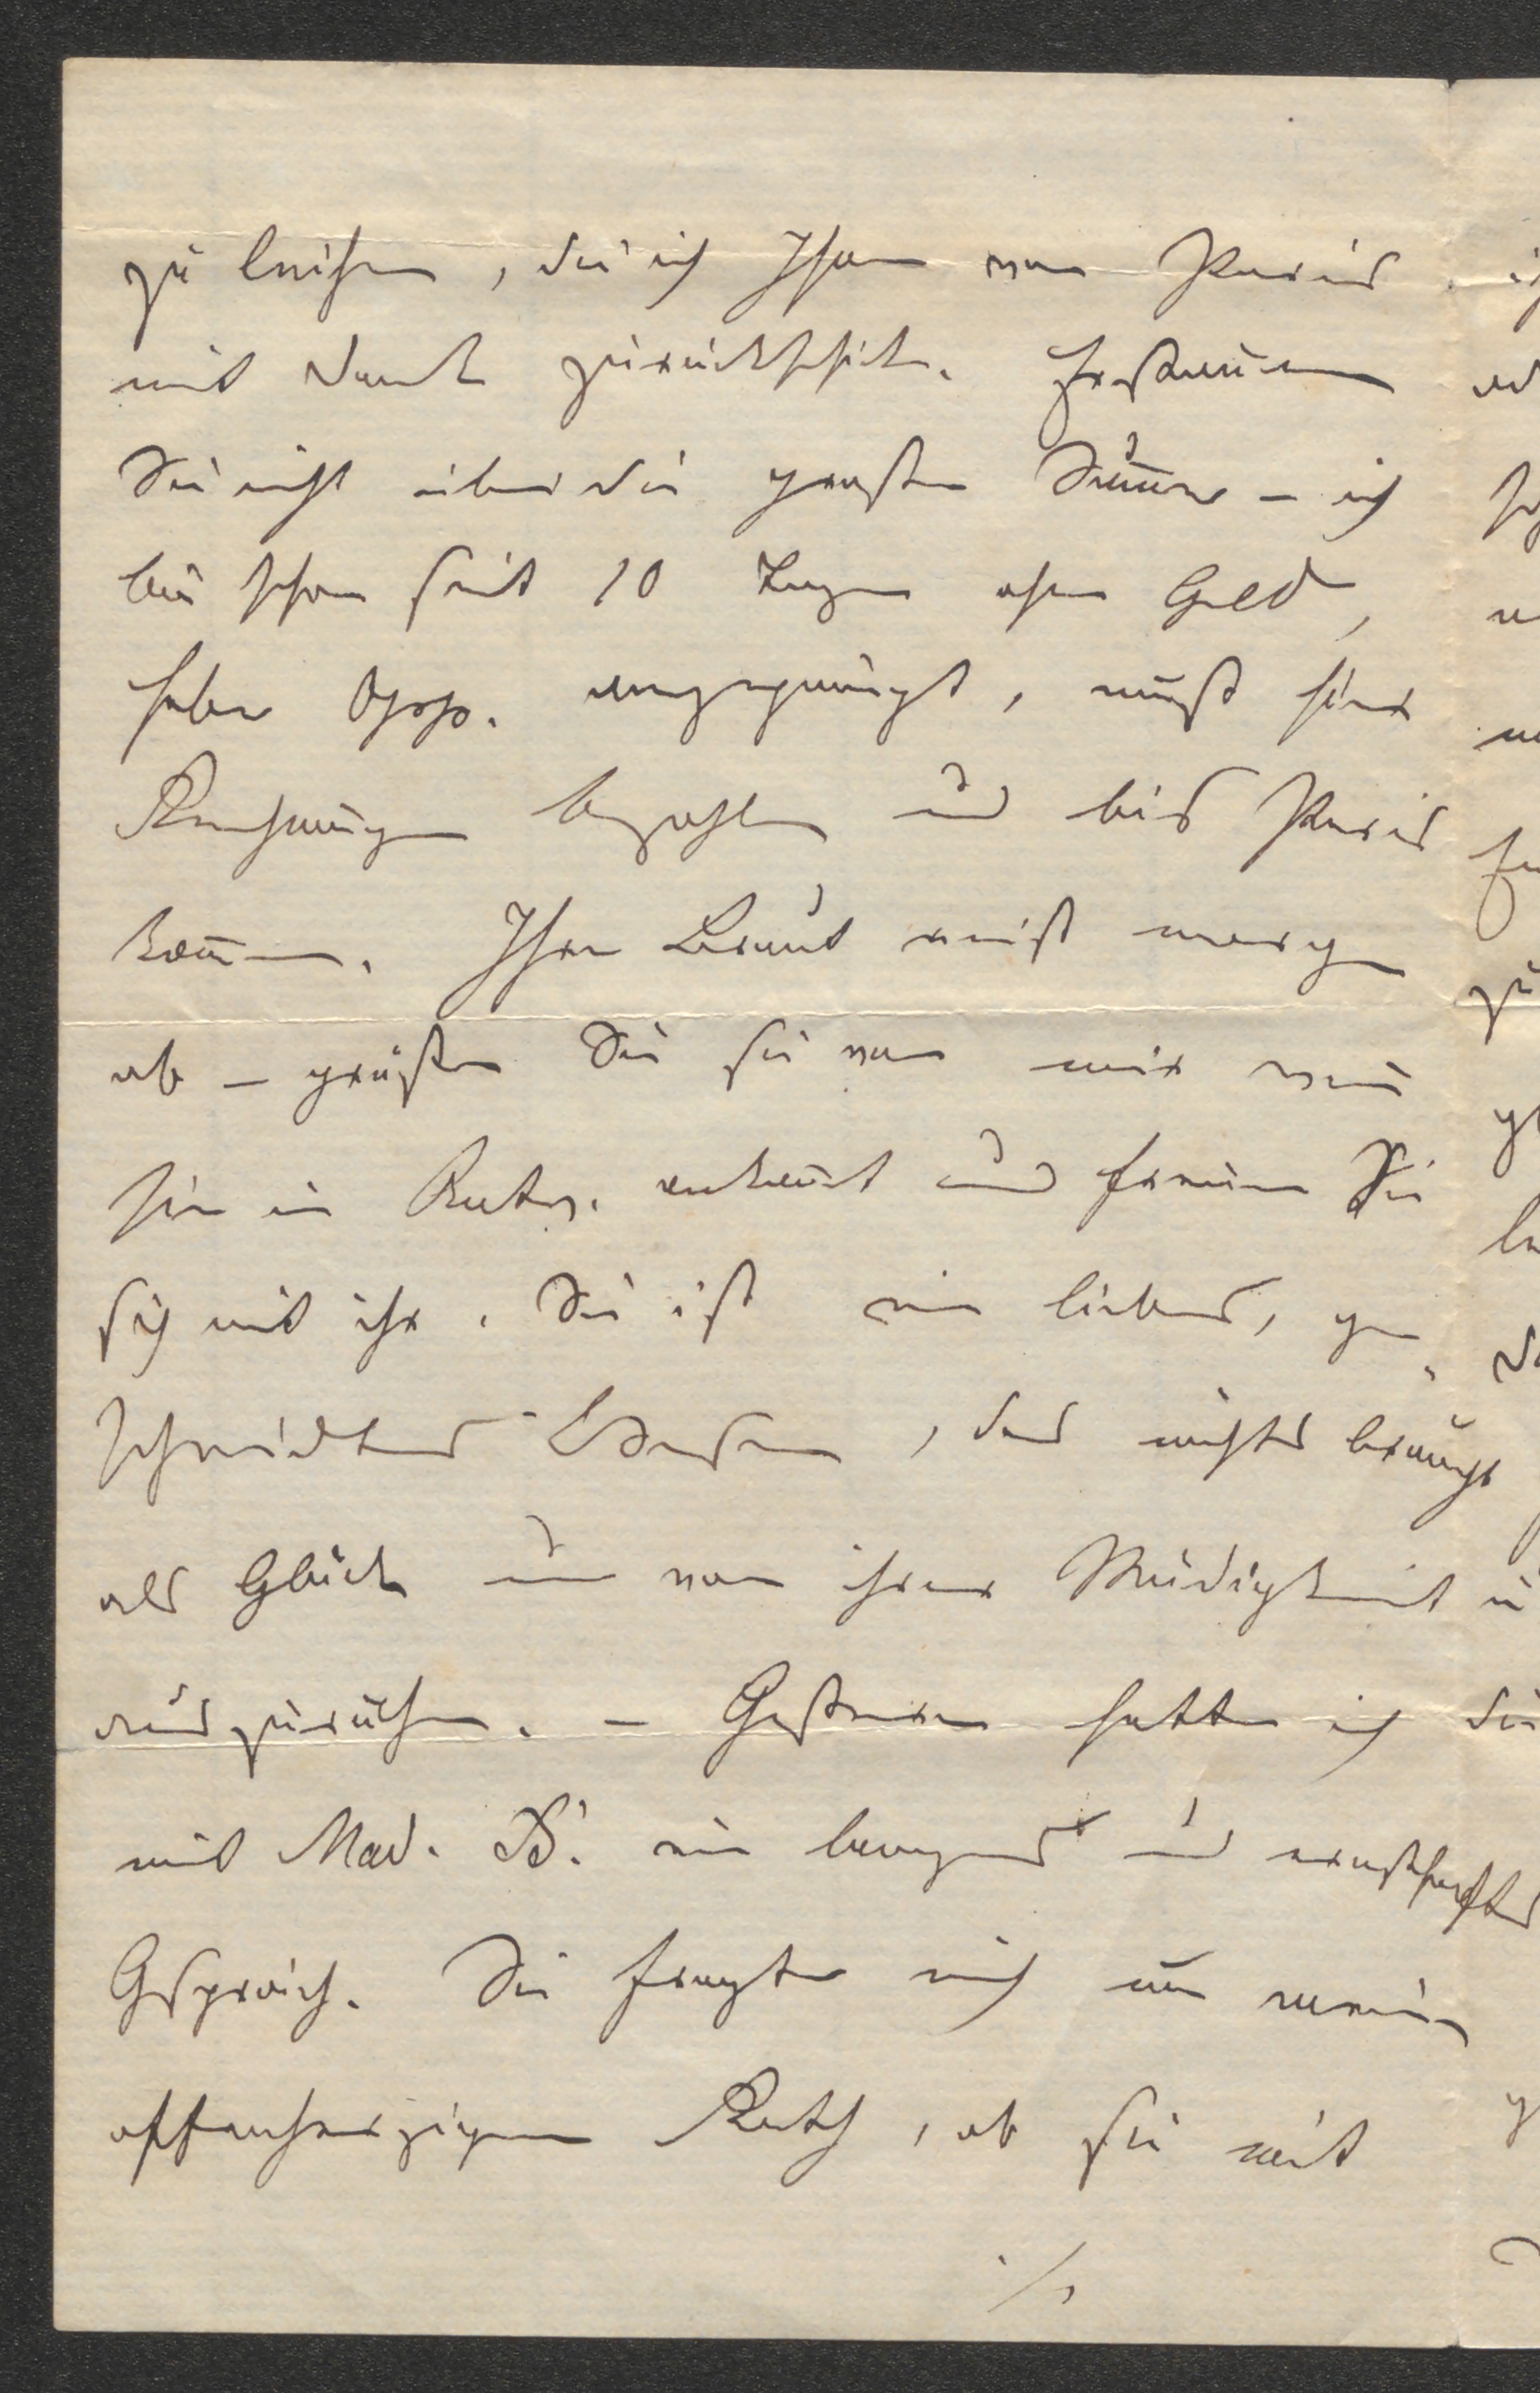 zu leihen, die ich Ihnen von Paris
mit Dank zurückschicke. Erstaunen
Sie nicht über die große Summe – ich
bin schon seit 10 Tagen ohne Geld,
habe Opp. angepumpt, muß hier
Rechnungen bezahlen und bis Paris
kommen. Ihre Braut reist morgen
ab – grüßen Sie sie von mir wenn
sie in ankommt und freuen Sie
sich mit ihr. Sie ist ein liebes, ge-
scheidtes Wesen, das nichts braucht
als Glück um von ihrer Müdigkeit
auszuruhen. – Gestern hatte ich
mit Mad. B. ein langes und ernsthaftes
Gespräch. Sie fragte mich um meinen
offenherzigen Rath, ob sie mit
./.